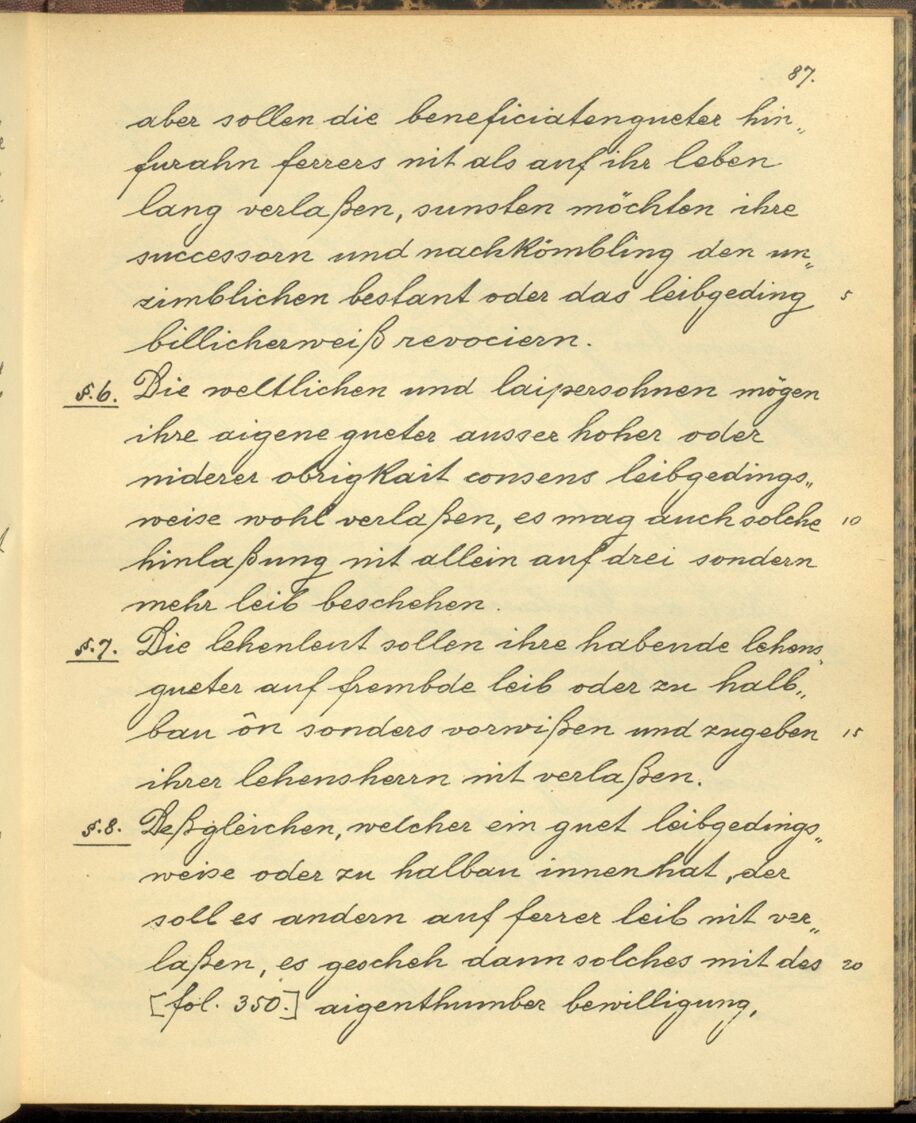 87.
aber sollen die beneficiatengueter hin„
furahn ferrers nit als auf ihr leben
lang verlaßen, sunsten möchten ihre
successorn und nachkömbling den un„
zimblichen bestant oder das leibgeding 5
billicherweiß revociern.
§.6. Die weltlichen und laipersohnen mögen
ihre aigene gueter ausser hoher oder
niderer obrigkait consens leibgedings„
weise wohl verlaßen, es mag auch solche 10
hinlaßung nit allein auf drei sondern
mehr leib beschehen.
§.7. Die lehenleut sollen ihre habende lehens„
gueter auf frembde leib oder zu halb„
bau ôn sonders vorwißen und zugeben 15
ihrer lehensherrn nit verlaßen.
§.8. Deßgleichen, welcher ein guet leibgedings„
weise oder zu halbau innenhat, der
soll es andern auf ferrer leib nit ver„
laßen, es gescheh dann solches mit des 20
[fol. 350.] aigenthumber bewilligung,